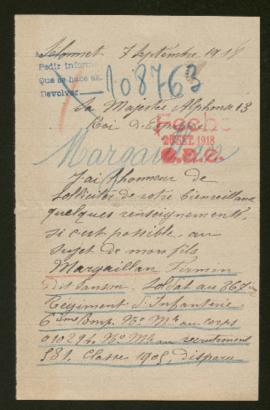 7 Septembre 1918
Pedir inform
Que se hace en
Devolver
108763
Sa Majesté Alphonse 13
Roi d'Espagne
Fecha
26 SET. 1918
Margaillan
J'ai l'honneur de
solliciter de votre bienveillance
quelques renseignements
si c'est possible au
sujet de mon fils
Margaillan Firmin
dit Sanson. Soldat au 367ème
Regiment d'Infanterie
6ème Comp. No Mle au corps
No Mle au recrutement
581. Classe 1905, disparu